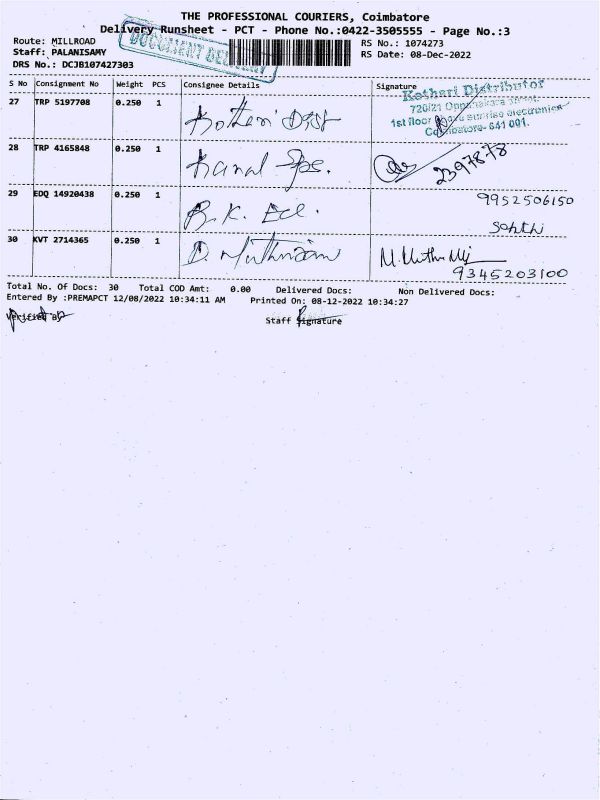 THE PROFESSIONAL COURIERS, Coimbatore
Delivery Runsheet - PCT - Phone No.:0422-3505555 - Page No.:3
DOCUMENT DELIVERY
Route: MILLROAD
RS No.: 1074273
Staff: PALANISAMY
RS Date: 08-Dec-2022
DRS No.: DCJB107427303
S No Consignment No Weight PCS Consignee Details Signature
Kothari Distributor
27 TRP 5197708 0.250 1 Kothari Dist
720/21 Oppanakara Street,
1st floor sunrise electronics
Coimbatore- 641 001.
28 TRP 4165848 0.250 1 Kamal Sps. 2397878
29 EDQ 14920438 0.250 1 B.K. Ecl. 9952506150
Sakthi
30 KVT 2714365 0.250 1 D. Muthuram M. Muthu Mj
9345203100
Total No. Of Docs: 30 Total COD Amt: 0.00 Delivered Docs: Non Delivered Docs:
Entered By :PREMAPCT 12/08/2022 10:34:11 AM Printed On: 08-12-2022 10:34:27
Verified By
Staff Signature